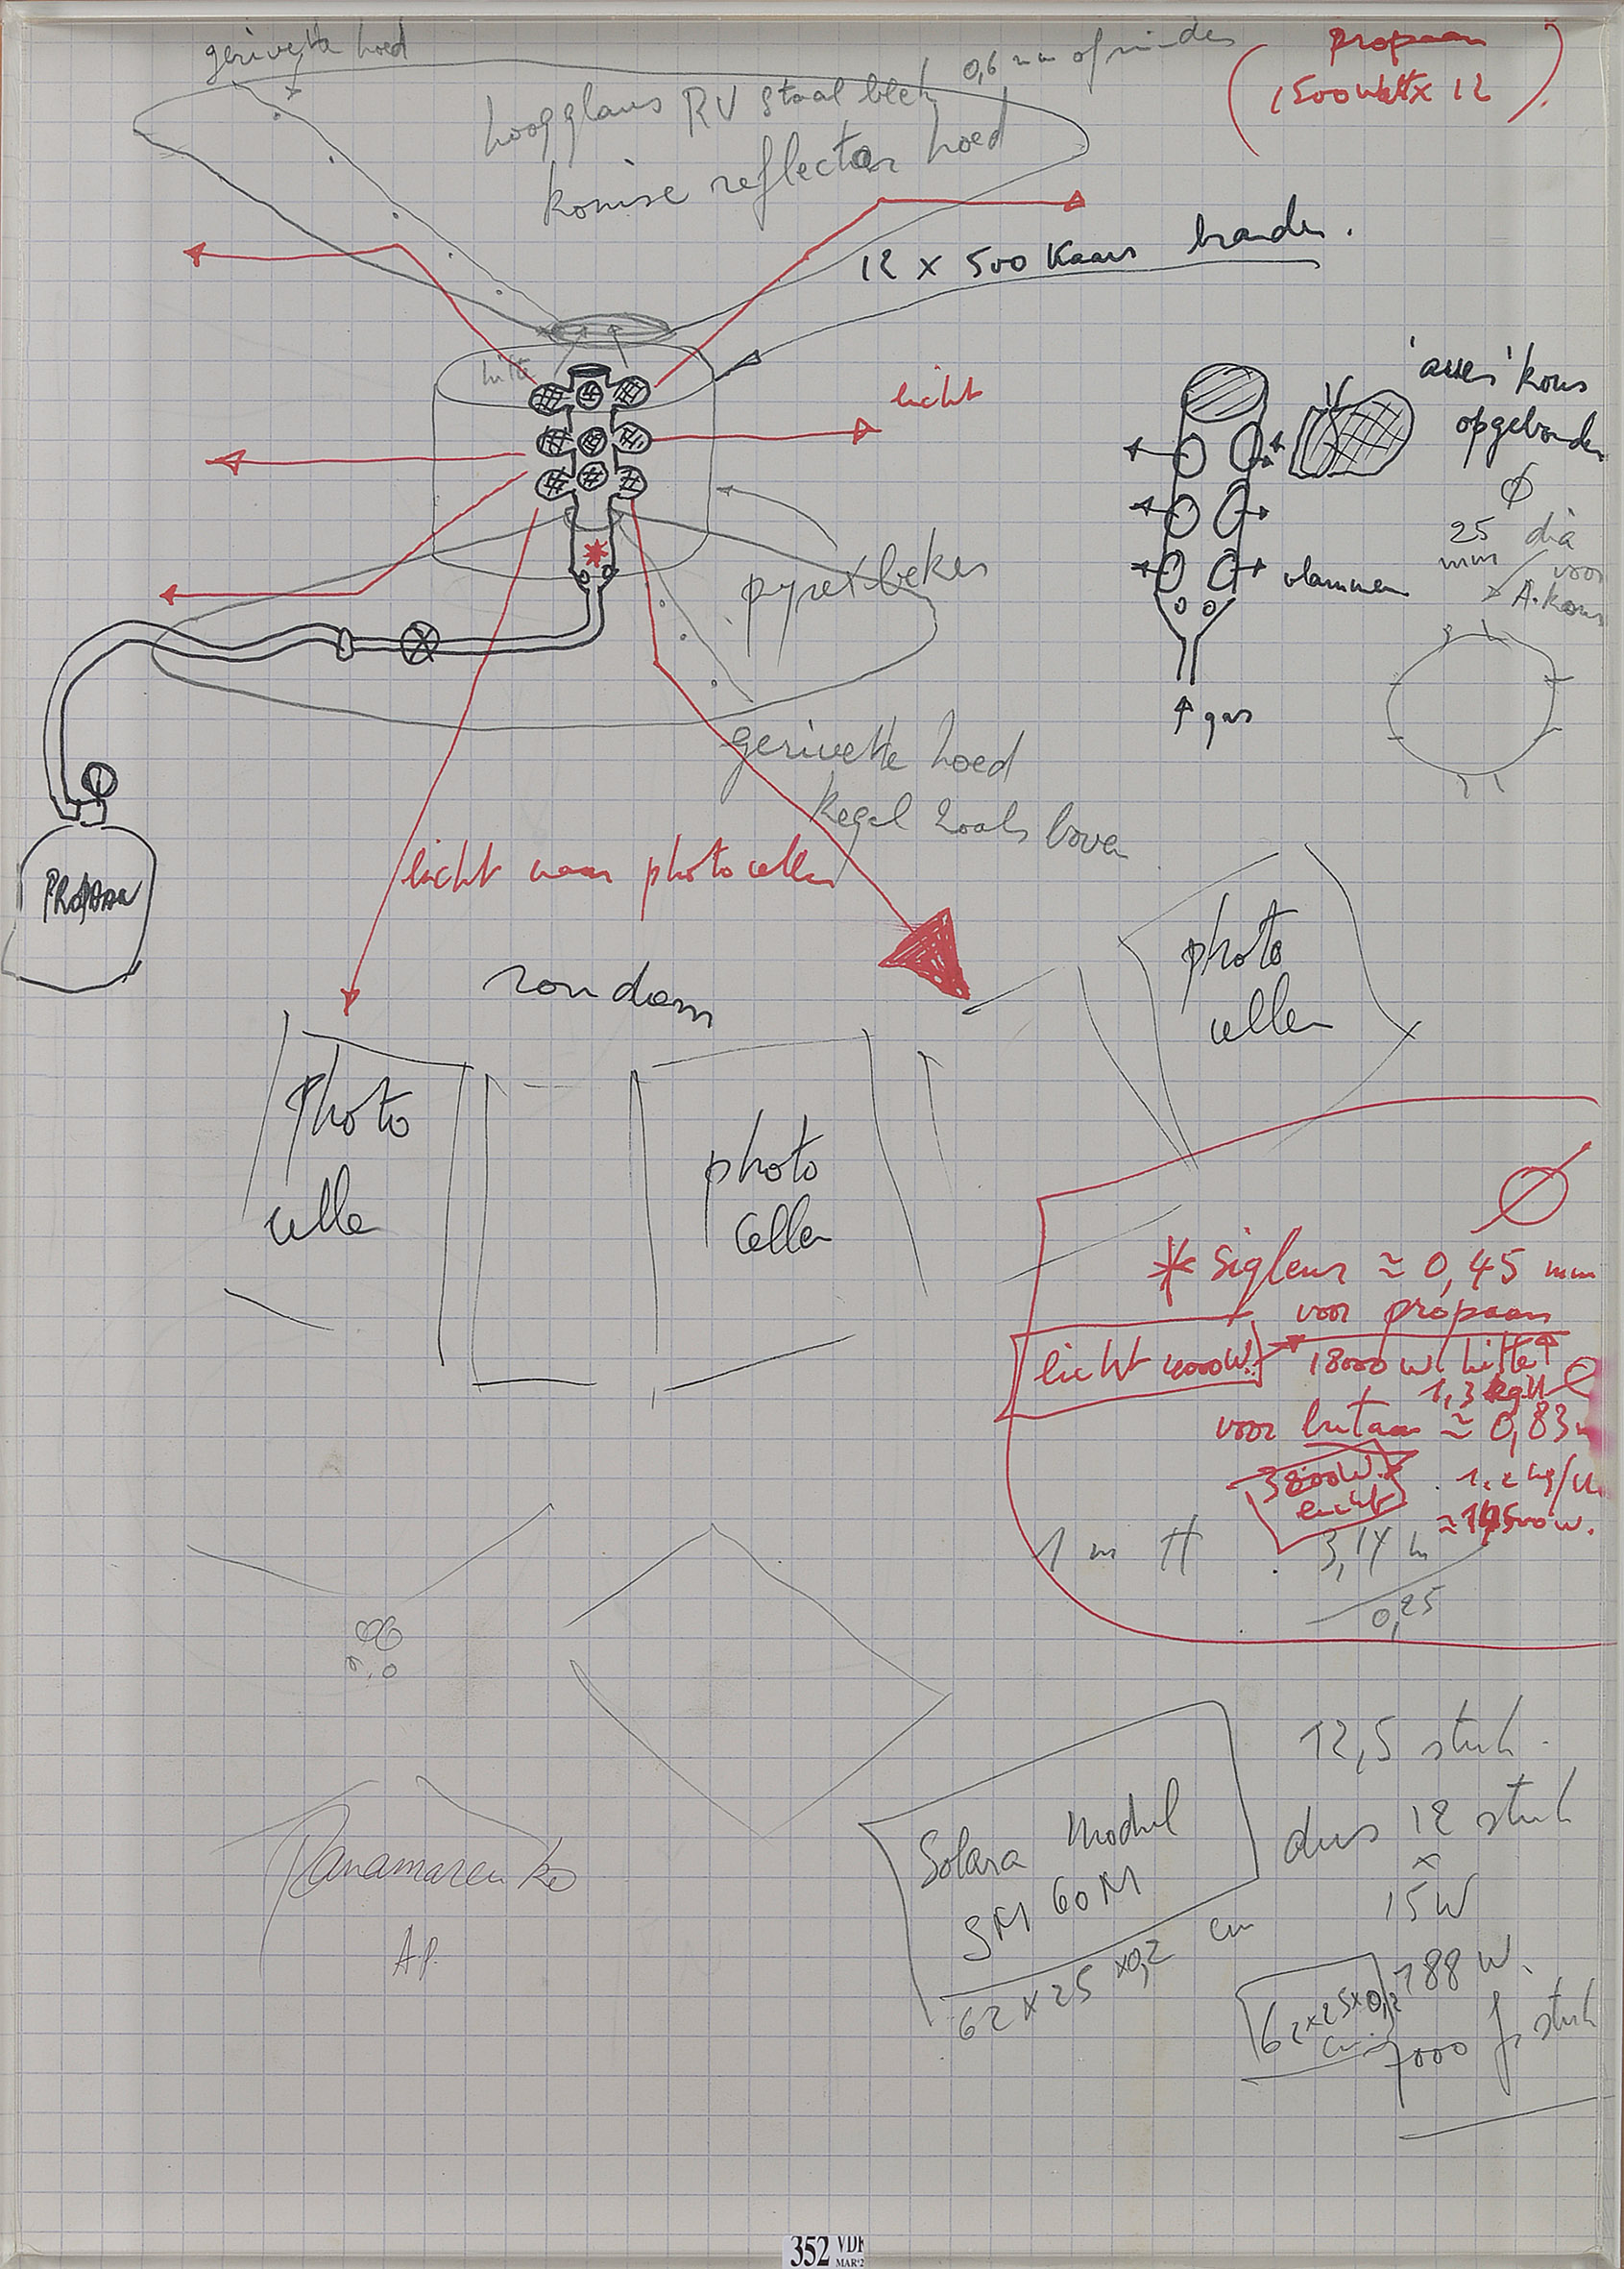 gerivette hoed
0,6 mm of minder
propaan
1500 watt x 12
hoogglans RV staal blech
konise reflector hoed
12 x 500 Kaars brander.
hitte
licht
'asses' kous
opgebonden
Ø
25 dia
mm voor
A. kous
vlammen
pyrex beker
gas
gerivette hoed
kegel zoals boven
PROPAAN
licht naar photocellen
rondom
photo
cellen
photo
cellen
photo
cellen
Ø
* Sigleur ≈ 0,45 mm
voor propaan
licht 4000W.
18000 W. hitte
1,3 kg/U
voor butaan ≈ 0,83
3800W.
licht
1,2 kg/U
≈ 14500 W.
1 m H
3,14 m
0,25
12,5 stuk.
Solara Modul
SM 60M
62 x 25 x 0,2 cm
dus 12 stuk
x
15W
188 W.
62x25x0,2
cm
7000 fr stuk
Panamarenko
A.P.
352 VDH
MAR'2